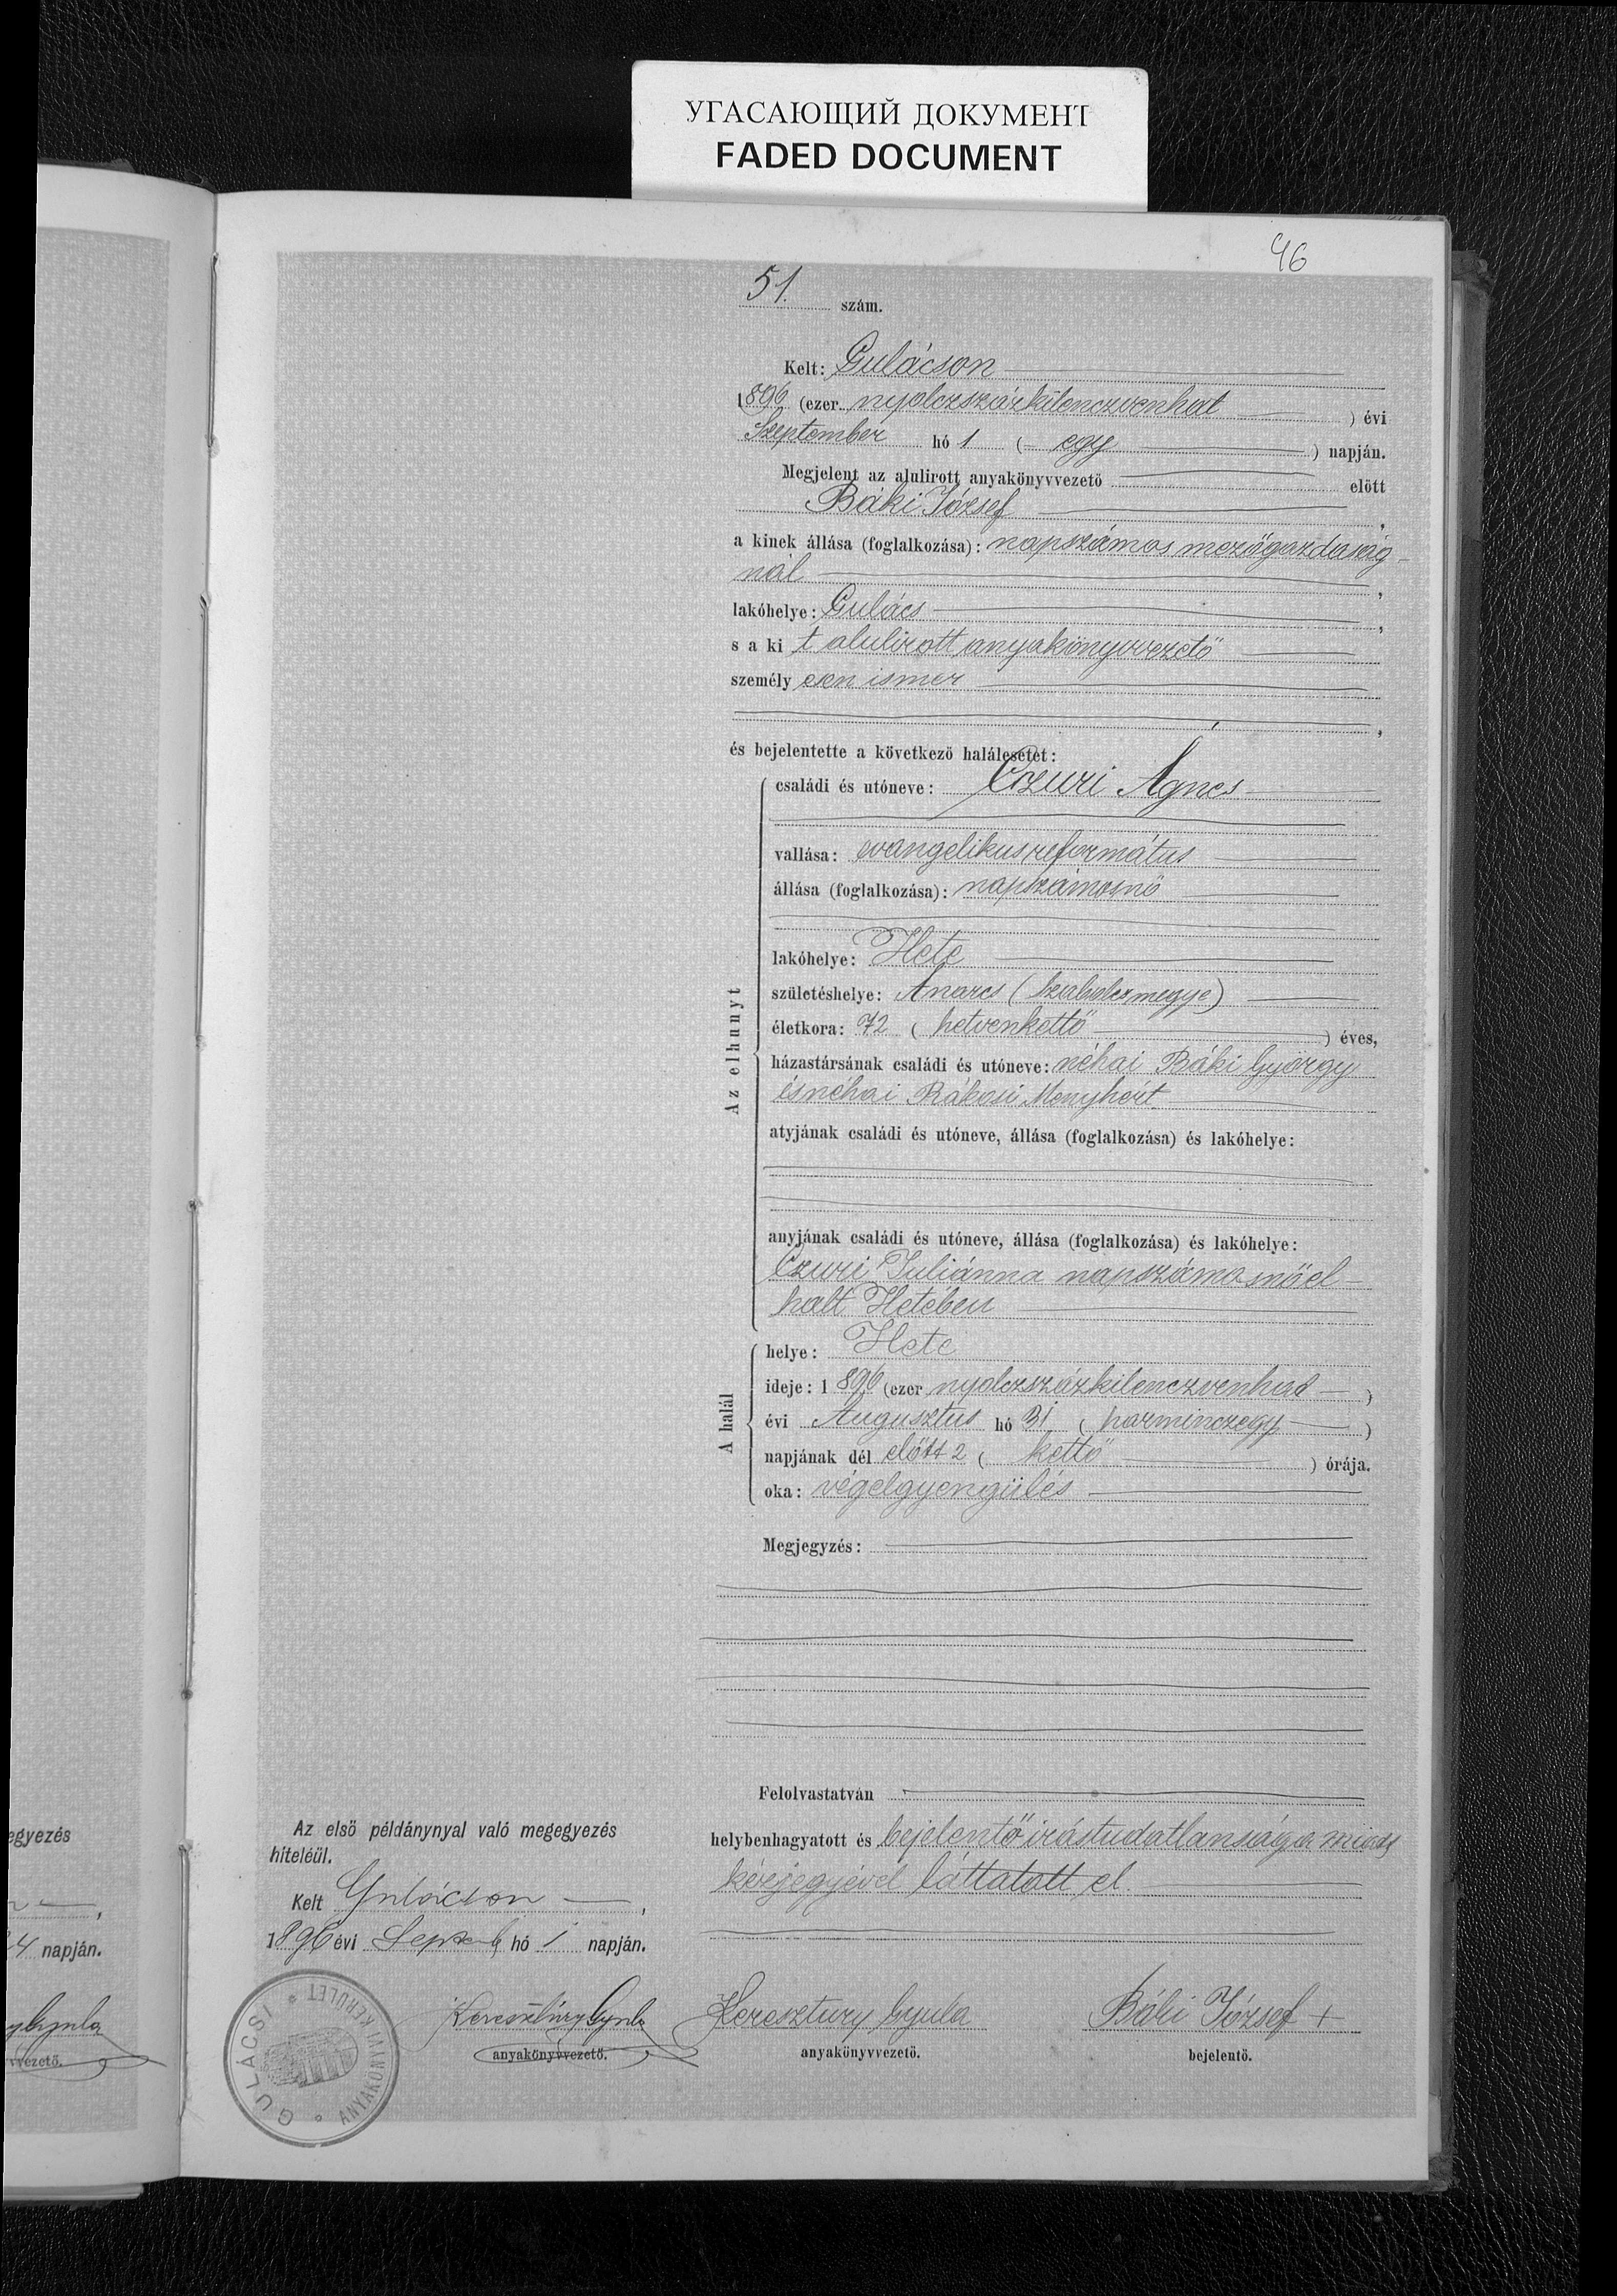 УГАСАЮЩИЙ ДОКУМЕНТ
FADED DOCUMENT
46
51. szám.
Kelt: Gulácson
1896 (ezer nyolczszázkilenczvenhat ) évi
Szeptember hó 1 ( egy ) napján.
Megjelent az alulirott anyakönyvvezető előtt
Báki József ,
a kinek állása (foglalkozása): napszámos mezőgazdaság-
nál ,
lakóhelye: Gulács ,
s a ki t alulirott anyakönyvvezető
személy esen ismer
,
és bejelentette a következő halálesetet:
Az elhunyt
családi és utóneve: Czuri Ágnes
vallása: evangelikus református
állása (foglalkozása): napszámosnő
lakóhelye: Hete
születéshelye: Anarcs (Szabolcsmegye)
életkora: 72 ( hetvenkettő ) éves,
házastársának családi és utóneve: néhai Báki György
és néhai Rákosi Menyhért
atyjának családi és utóneve, állása (foglalkozása) és lakóhelye:
anyjának családi és utóneve, állása (foglalkozása) és lakóhelye:
Czuri Juliánna napszámosnő el-
halt Hetében
A halál
helye: Hete
ideje: 1 896 (ezer nyolczszázkilenczvenhat )
évi Augusztus hó 31 ( harminczegy )
napjának dél előtt 2 ( kettő ) órája.
oka: végelgyengülés
Megjegyzés:
Felolvastatván
helybenhagyatott és bejelentő irástudatlansága miatt
kézjegyével láttatott el.
Keresztury Gyula
anyakönyvvezető.
Báki József +
bejelentő.
Az első példánynyal való megegyezés
hiteléül.
Kelt Gulácson ,
1896 évi Septemb hó 1 napján.
Keresztúry Gyula
anyakönyvvezető.
GULÁCSI * ANYAKÖNYVI KERÜLET *
egyezés
,
4 napján.
y Gyula
vvezető.